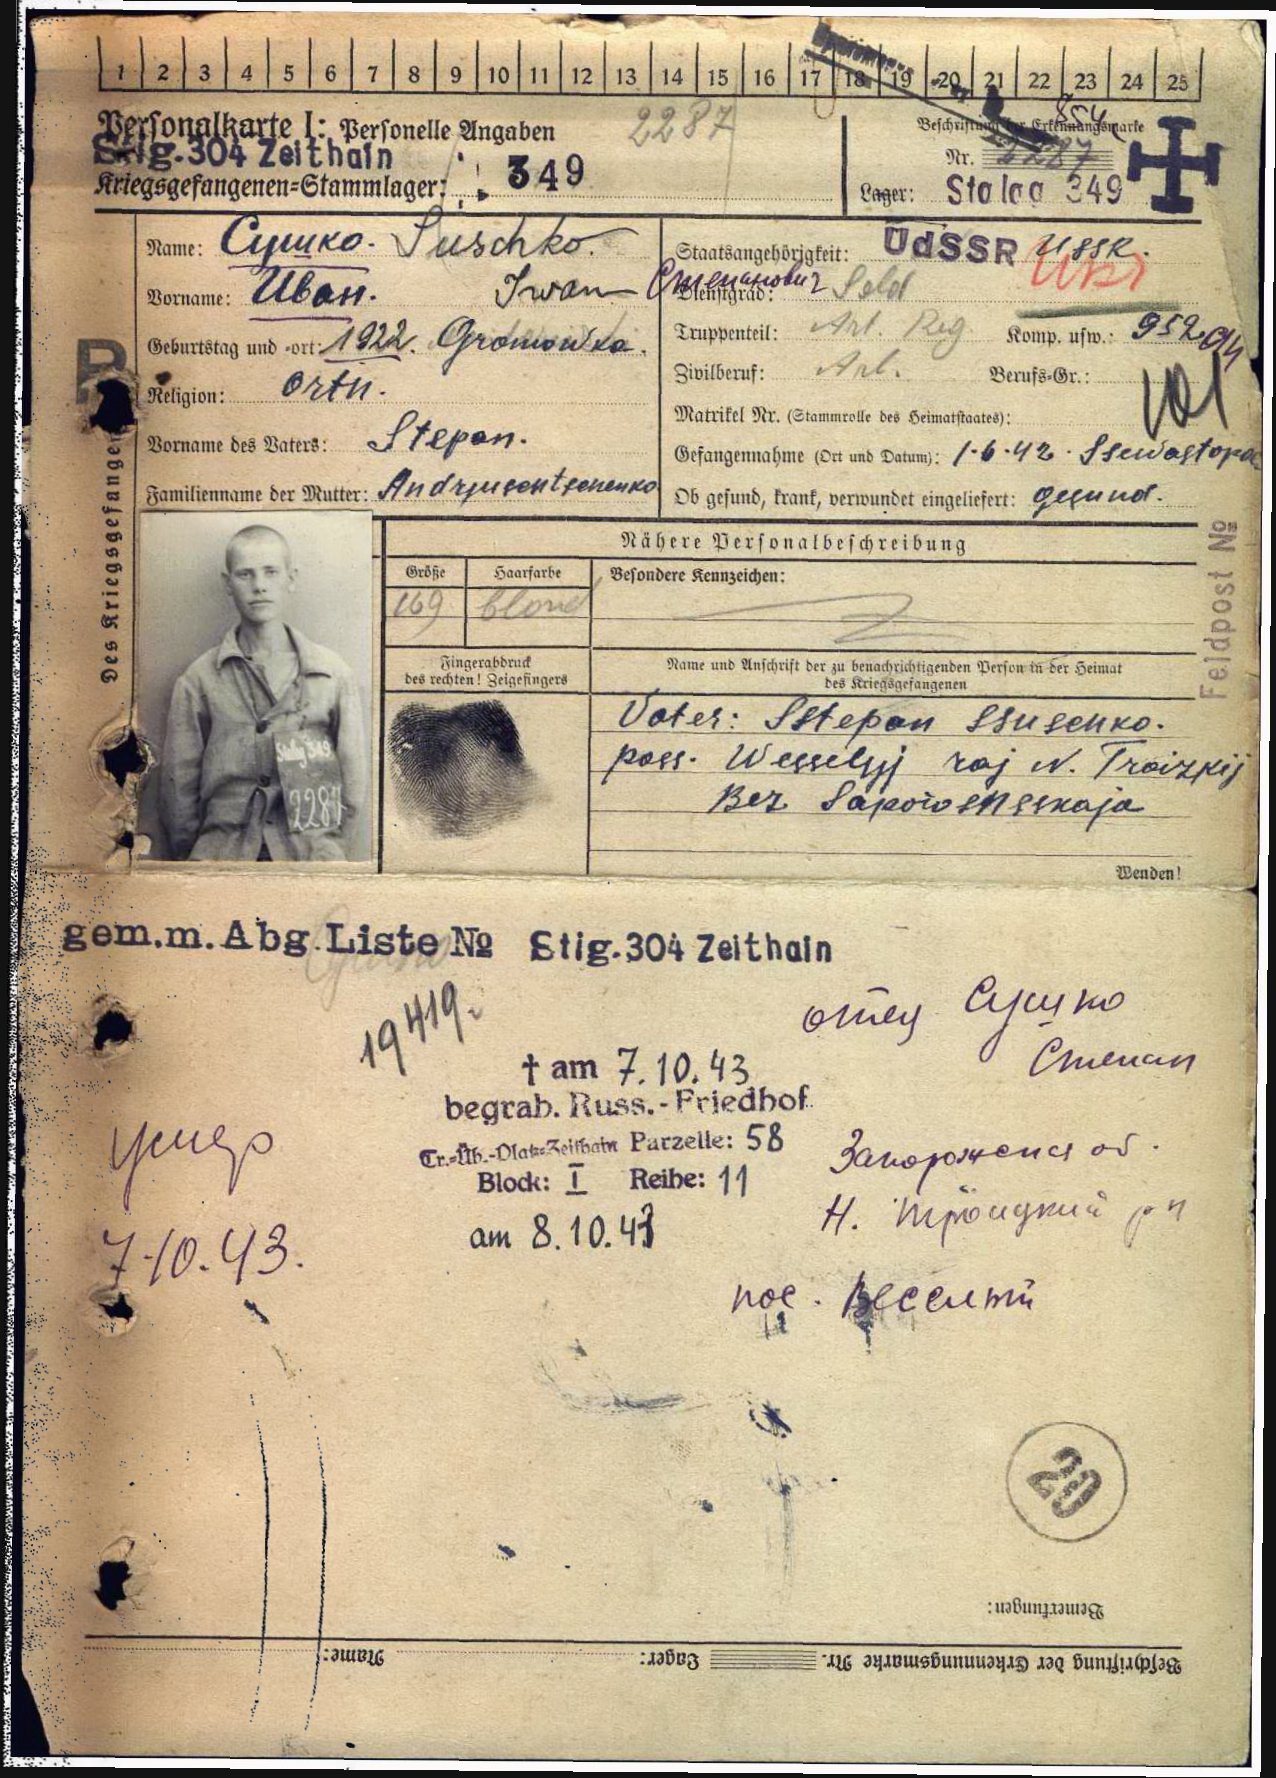 1 2 3 4 5 6 7 8 9 10 11 12 13 14 15 16 17 18 19 20 21 22 23 24 25
Personalkarte I: Personelle Angaben
2287
Stlg.304 Zeithain
Kriegsgefangenen=Stammlager: 349
Beschriftung der Erkennungsmarke
Nr. 2287
Lager: Stalag 349
Name: Сушко. Suschko.
Vorname: Иван. Iwan Степанович
Geburtstag und -ort: 1922. Gromowka.
Religion: Orth.
Vorname des Vaters: Stepan.
Familienname der Mutter:
Staatsangehörigkeit: UdSSR USSR.
Ukr
Dienstgrad: Sold
Truppenteil: Art. Reg Komp. usw.: 952
Zivilberuf: Arb. Berufs-Gr.:
Matrikel Nr. (Stammrolle des Heimatstaates):
Gefangennahme (Ort und Datum): 1.6.42. Ssewastopol
Ob gesund, krank, verwundet eingeliefert: gesund.
Des Kriegsgefangenen
Feldpost №
Nähere Personalbeschreibung
Größe Haarfarbe Besondere Kennzeichen:
169 blond
Stalg 349
2287
Fingerabdruck
des rechten! Zeigefingers
Name und Anschrift der zu benachrichtigenden Person in der Heimat
des Kriegsgefangenen
Vater: Sstepan Ssusenko.
poss. Wesselyj raj N. Troizkij
Bez Saporoshskaja
Wenden!
gem.m.Abg.Liste № Stlg.304 Zeithain
19419.
отец Сушко
Степан
† am 7.10.43
begrab. Russ.-Friedhof
Tr.=Üb.-Platz=Zeithain Parzelle: 58
Block: I Reihe: 11
am 8.10.43
умер
7.10.43.
Запорожская об.
Н. Троицкий р-н
пос. Веселый
20
Bemerkungen:
Beschriftung der Erkennungsmarke Nr. Lager: Name: